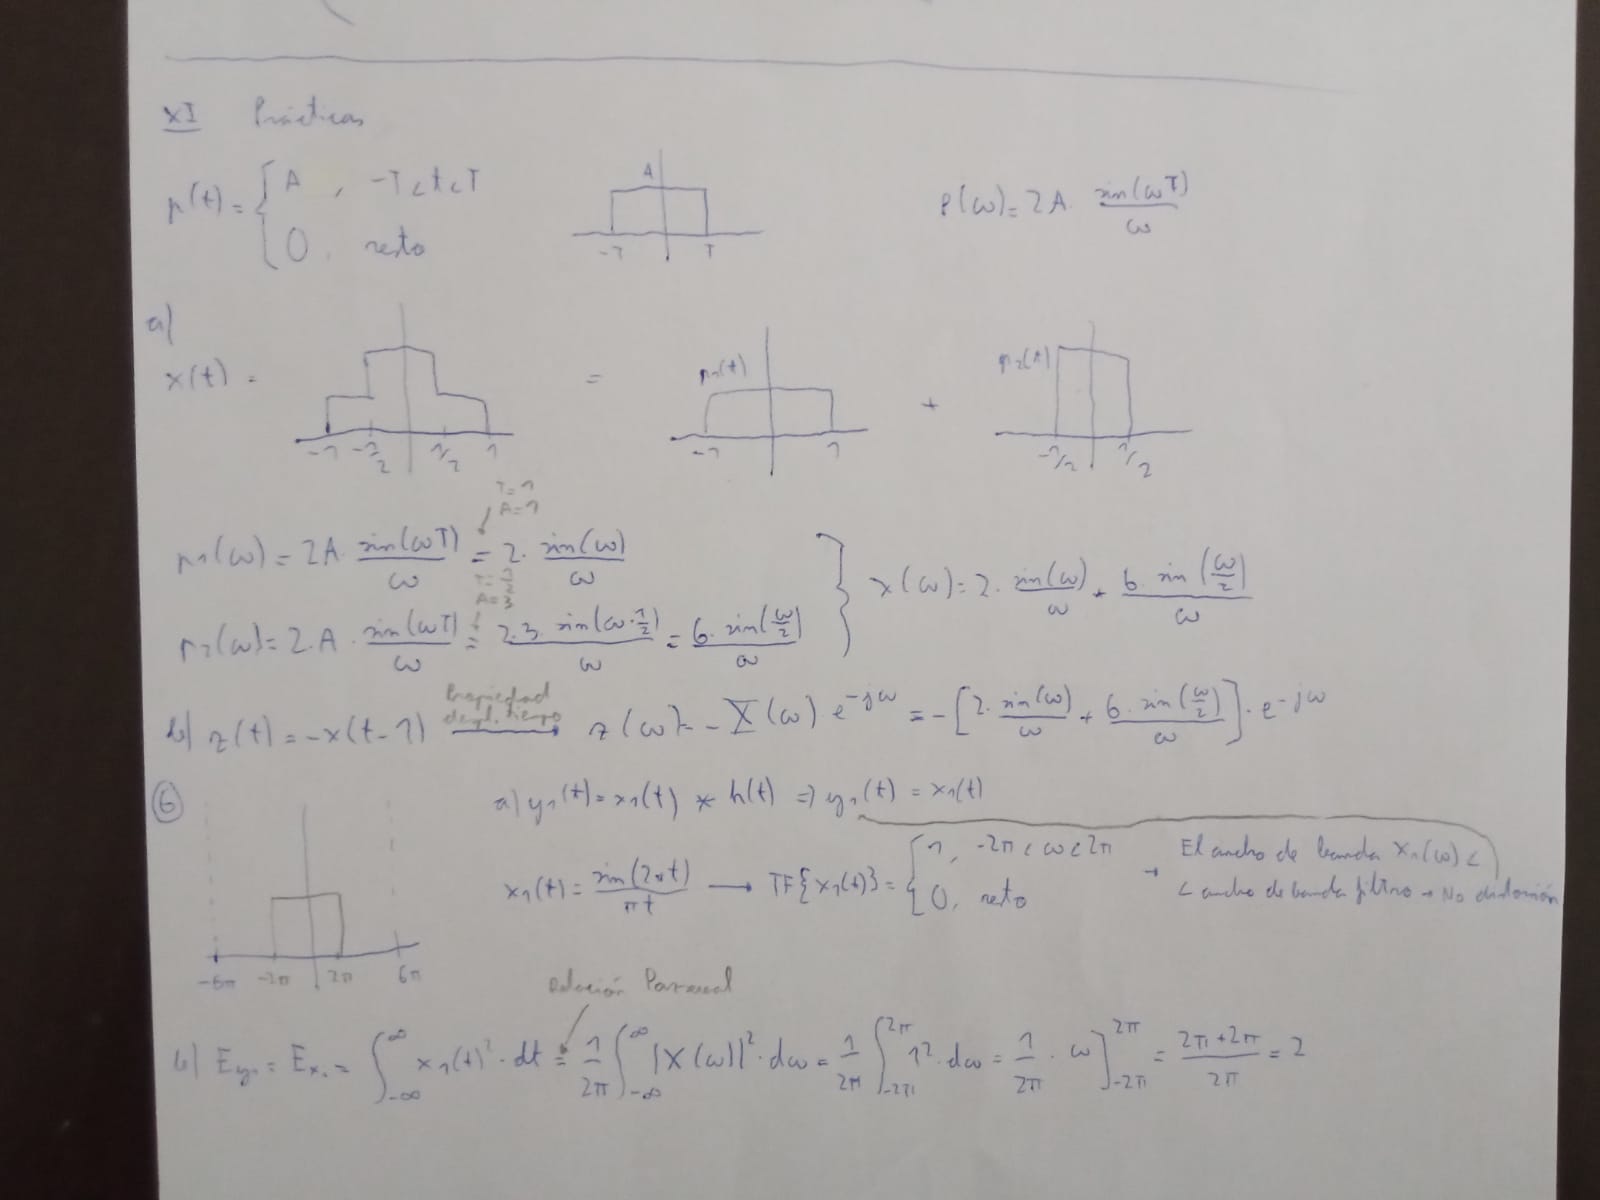 XI Prácticas
p(t) = { A , -T < t < T
0, resto
A
-T T
P(ω) = 2A · sin(ωT)/ω
a)
x(t) =
-1 -1/2 1/2 1
=
p1(t)
-1 1
+
p2(t)
-1/2 1/2
T=1
A=1
p1(ω) = 2A · sin(ωT)/ω = 2 · sin(ω)/ω
T=1/2
A=3
p2(ω) = 2·A · sin(ωT)/ω = 2·3 · sin(ω·1/2)/ω = 6 · sin(ω/2)/ω
} x(ω) = 2 · sin(ω)/ω + 6 · sin(ω/2)/ω
Propiedad
despl. tiempo
b) z(t) = -x(t-1) → z(ω) = -X(ω) e^-jω = -[2 · sin(ω)/ω + 6 · sin(ω/2)/ω] · e^-jω
6
a) y1(t) = x1(t) * h(t) ⇒ y1(t) = x1(t)
x1(t) = sin(2πt)/πt → TF{x1(t)} = { 1, -2π < ω < 2π
0, resto
→ El ancho de banda X1(ω) <
< ancho de banda filtro → No distorsión
-6π -2π 2π 6π
Relación Parseval
b) Ey1 = Ex1 = ∫_-∞^∞ x1(t)² · dt = 1/2π ∫_-∞^∞ |X(ω)|² · dω = 1/2π ∫_-2π^2π 1² · dω = 1/2π · ω]_-2π^2π = (2π + 2π)/2π = 2